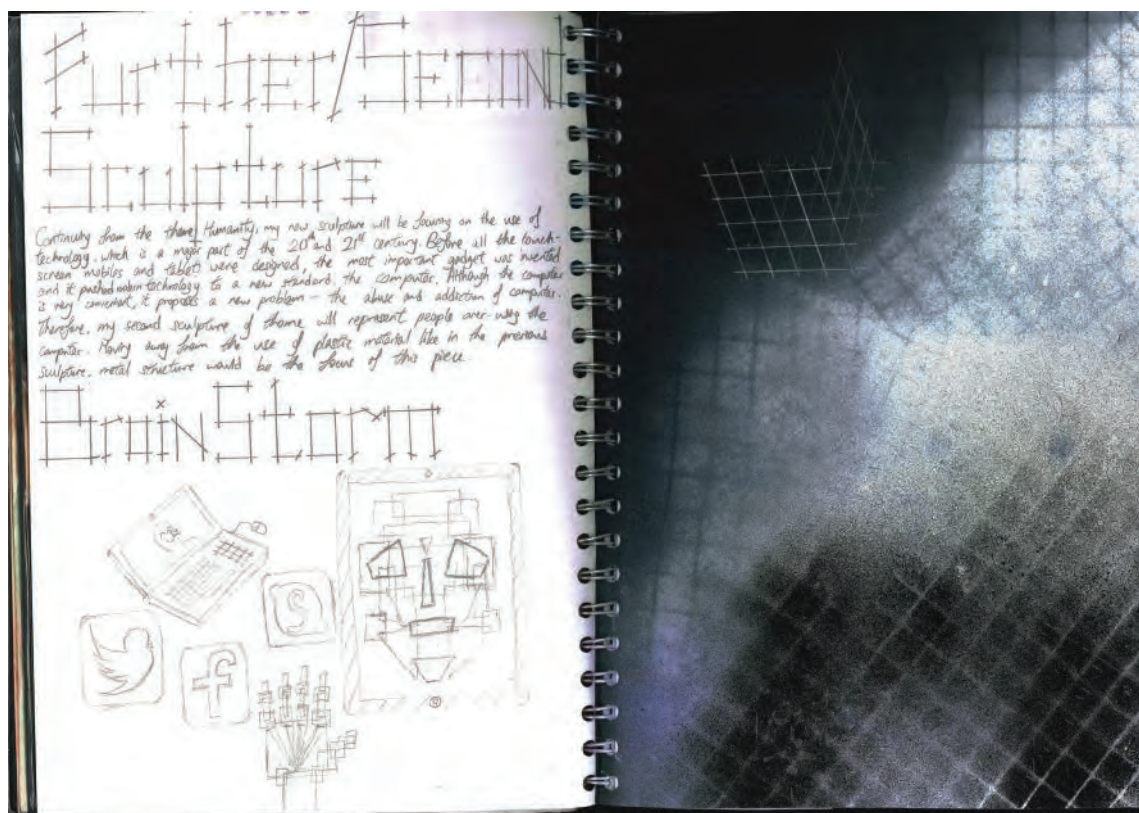 Further/Second
Sculpture
Continuity from the theme, Humanity, my new sculpture will be focusing on the use of
technology, which is a major part of the 20th and 21st century. Before all the touch-
screen mobiles and tablets were designed, the most important gadget was invented
and it pushed technology to a new standard, the computer. Although the computer
is very convenient, it proposes a new problem – the abuse and addiction of computer.
Therefore, my second sculpture of theme will represent people over-using the
computer. Moving away from the use of plastic material like in the previous
sculpture, metal structure would be the focus of this piece.
BrainStorm
S
f